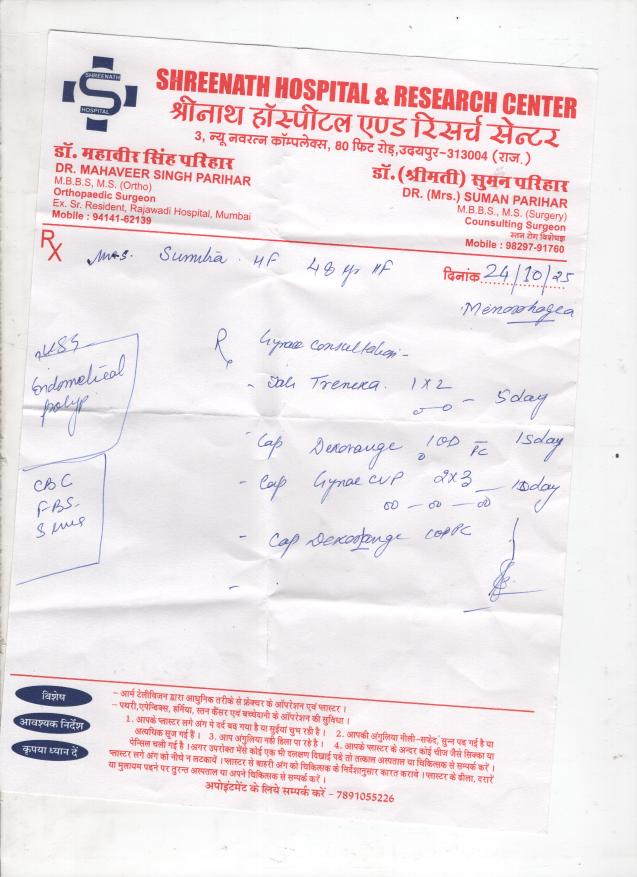 SHREENATH
S
HOSPITAL
SHREENATH HOSPITAL & RESEARCH CENTER
श्रीनाथ हॉस्पीटल एण्ड रिसर्च सेन्टर
3, न्यू नवरत्न कॉम्पलेक्स, 80 फिट रोड़, उदयपुर-313004 (राज.)
डॉ. महावीर सिंह परिहार
DR. MAHAVEER SINGH PARIHAR
M.B.B.S, M.S. (Ortho)
Orthopaedic Surgeon
Ex. Sr. Resident, Rajawadi Hospital, Mumbai
Mobile : 94141-62139
डॉ. (श्रीमती) सुमन परिहार
DR. (Mrs.) SUMAN PARIHAR
M.B.B.S., M.S. (Surgery)
Counsulting Surgeon
स्तन रोग विशेषज्ञ
Mobile : 98297-91760
RX
Mrs. 48 yr
दिनांक 24/10/25
Menorrhagea
USG
Endometrial
polyp
CBC
FBS
R Gynae Consultation -
- Tab 1x2 - 5 day
- Cap Dexorange 1 OD PC 15 day
- Cap Gynae CVP 2x3
- Cap Dexorange
विशेष
आवश्यक निर्देश
कृपया ध्यान दें
- आर्म टेलीविजन द्वारा आधुनिक तरीके से फ्रेक्चर के ऑपरेशन एवं प्लास्टर।
- पथरी, एपेन्डिक्स, हर्निया, स्तन कैंसर एवं बच्चेदानी के ऑपरेशन की सुविधा।
1. आपके प्लास्टर लगे अंग मे दर्द बढ़ गया है या सुईयां चुभ रही है। 2. आपकी अंगुलिया नीली-सफेद, सुन्न पड़ गई है या
अत्यधिक सूज गई है। 3. आप अंगुलिया नही हिला पा रहे है। 4. आपके प्लास्टर के अन्दर कोई चीज जैसे सिक्का या
पेन्सिल चली गई है। अगर उपरोक्त मेंसे कोई एक भी लक्षण दिखाई पड़े तो तत्काल अस्पताल या चिकित्सक से सम्पर्क करें।
प्लास्टर लगे अंग को नीचे न लटकायें। प्लास्टर से बाहरी अंग को चिकित्सक के निर्देशानुसार कारत करावे। प्लास्टर के ढीला, दरारें
या मुलायम पड़ने पर तुरन्त अस्पताल या अपने चिकित्सक से सम्पर्क करें।
अपोइंटमेंट के लिये सम्पर्क करें - 7891055226